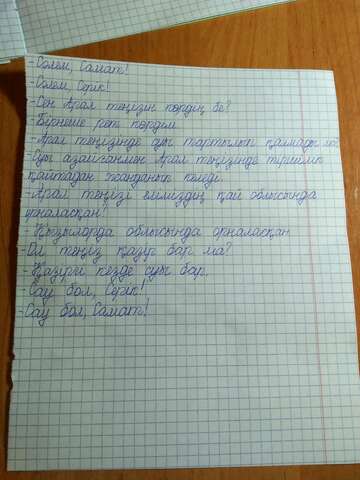 - Сәлем, Самат!
- Сәлем, Серік!
- Сен Арал теңізін көрдің бе?
- Бірнеше рет көрдім
- Арал теңізінде суы тартылып қалмады ма
- Суы азайғанмен Арал теңізінде тіршілік
қайтадан жанданып келеді.
- Арал теңізі еліміздің қай облысында
орналасқан?
- Қызылорда облысында орналасқан
- Ол теңіз қазір бар ма?
- Қазіргі кезде суы бар.
- Сау бол, Серік!
- Сау бол, Самат!